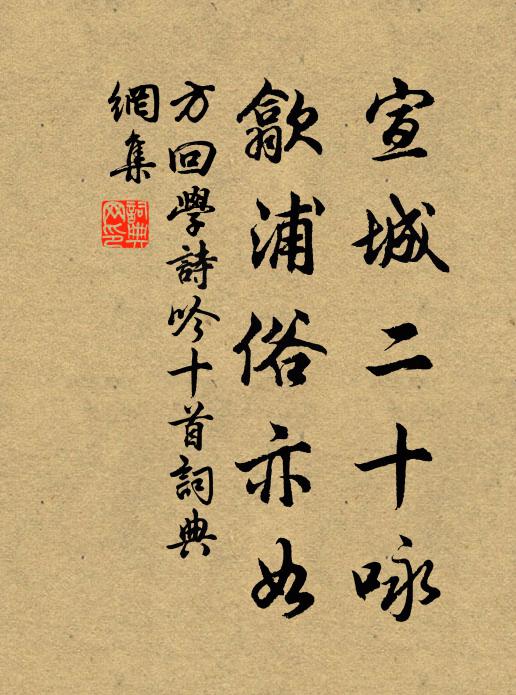 宣城二十咏
歙浦俗亦如
方回學詩吟十首詞典
網集
詞典
网印